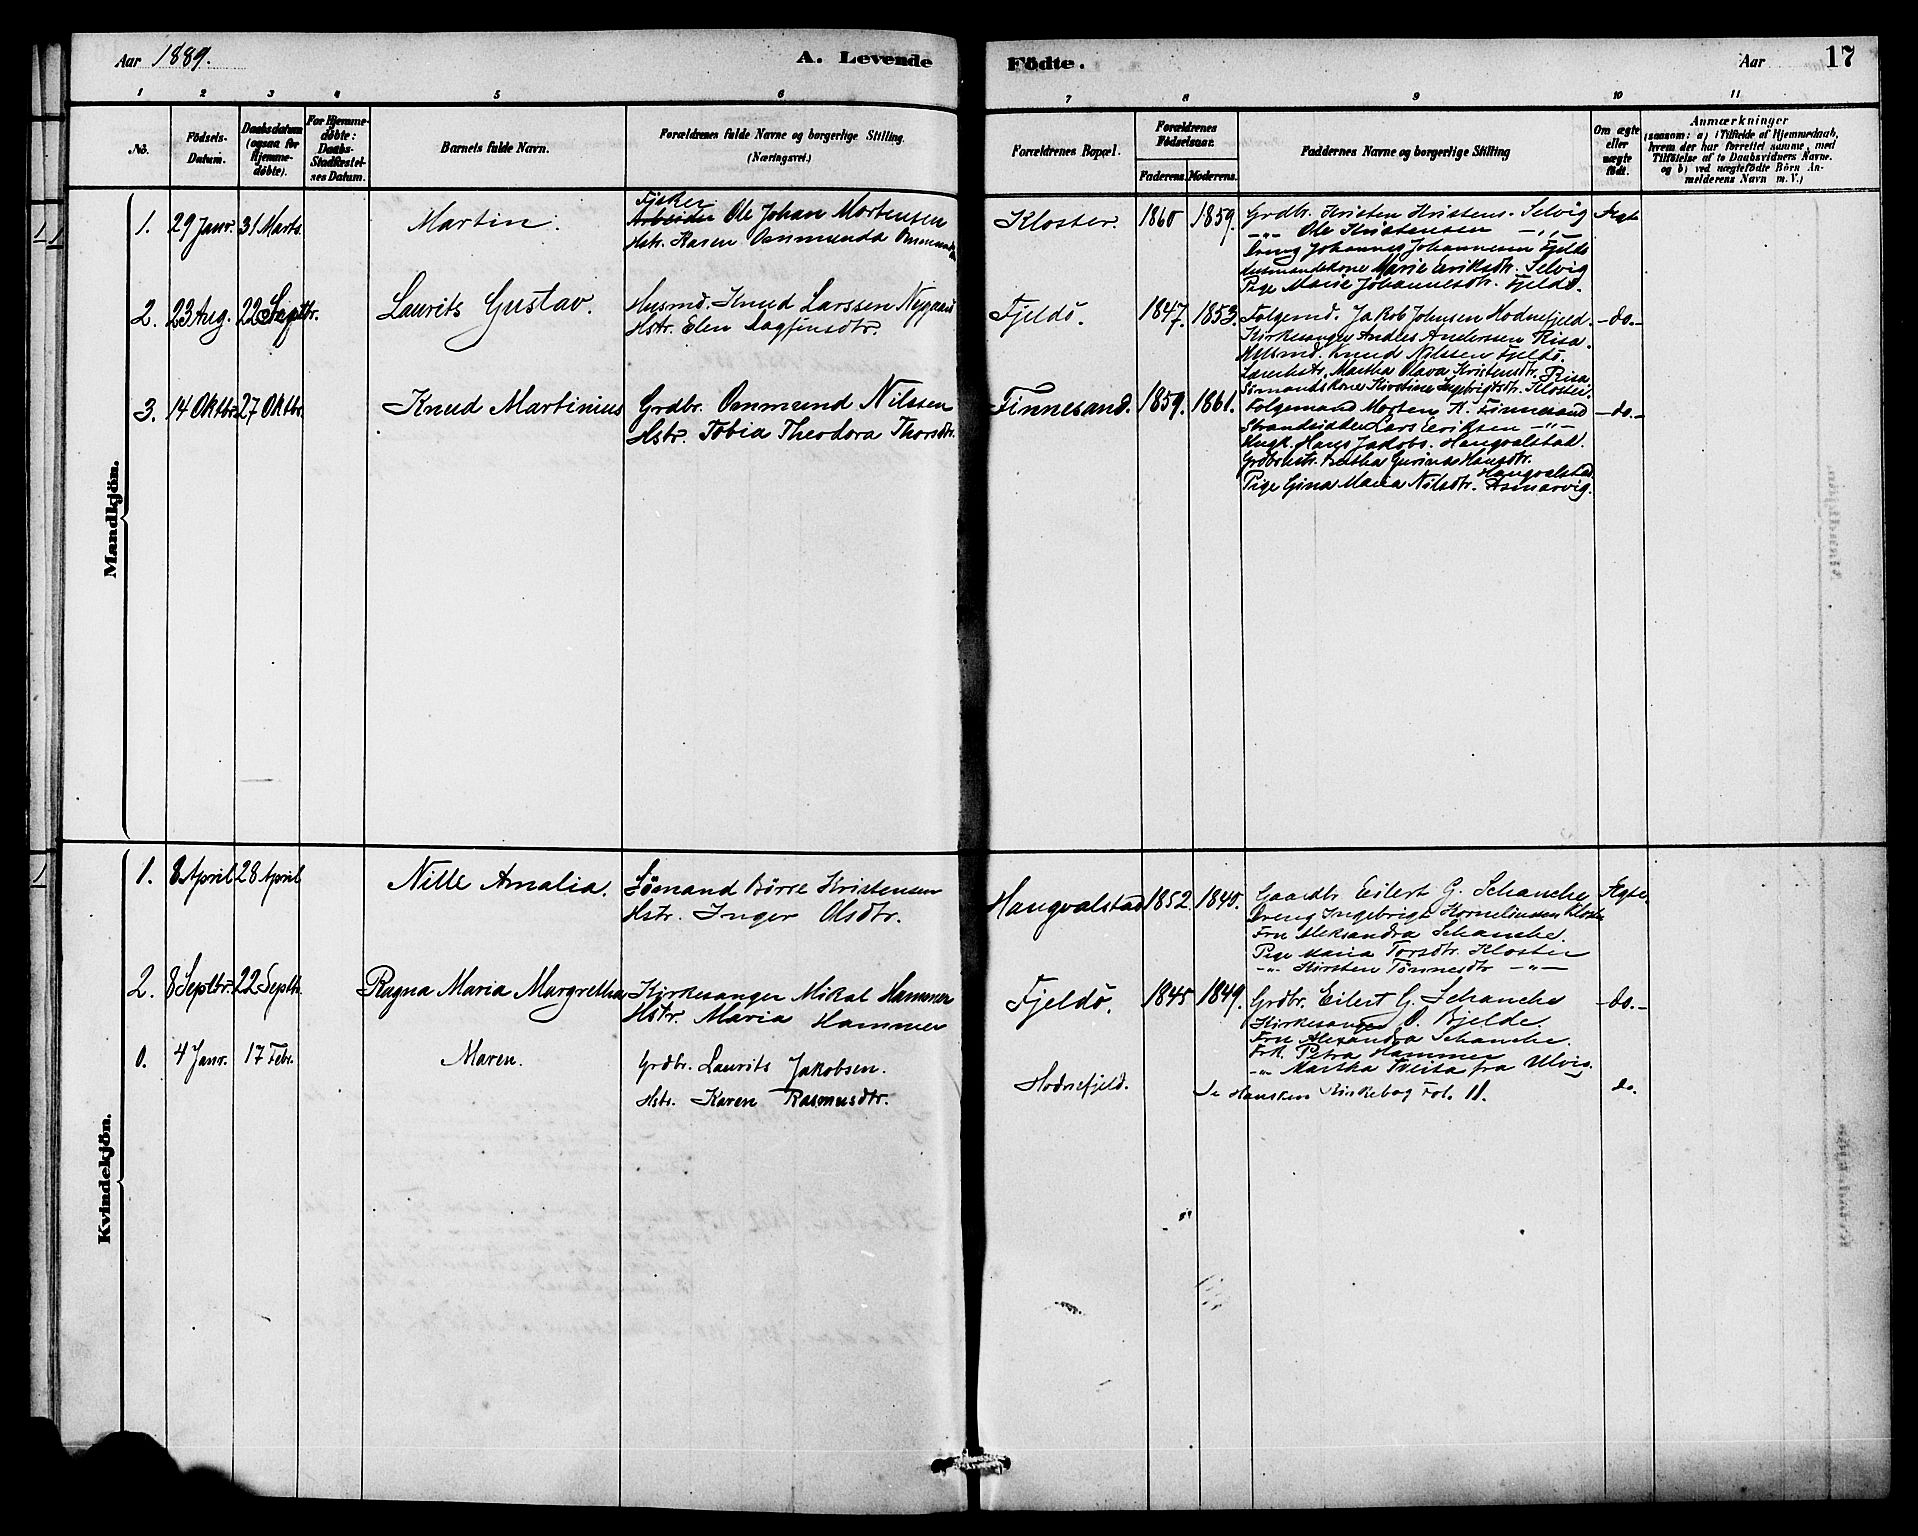 Aar 1889.
A. Levende
Födte.
Aar
17
1 2 3 4 5 6 7 8 9 10 11
No.
Födsels-
Datum.
Daabsdatum
(ogsaa for
Hjemme-
döbte).
For Hjemme-
döbte:
Daabs-
Stadfæstel-
ses Datum.
Barnets fulde Navn.
Forældrenes fulde Navne og borgerlige Stilling.
(Næringsvei.)
Forældrenes Bopæl.
Forældrenes
Födselsaar.
Faderens. Moderens.
Faddernes Navne og borgerlige Stilling
Om ægte
eller
uægte
född.
Anmærkninger
(saasom: a) i Tilfælde af Hjemmedaab,
hvem der har forrettet samme, med
Tilföielse af to Daabsvidners Navne.
og b) ved uægtefödte Börn An-
melderens Navn m. V.)
Mandkjön.
1. 29 Janr. 31 Marts. Martin.
Fisker
Arbeider Ole Johan Mortensen
Hstr. Karen Ommunda Ommunds
Kloster. 1860 1859.
Grdbr. Kristen Kristens. Selvig
-"- Ole Kristensen -"-
Dreng Johannes Johannesen Fjeldö
Husmandskone Marie Eriksdtr. Selvig
Pige Marie Johannesdtr. Fjeldö.
Ægte
2. 23 Aug. 22 Septbr. Laurits Gustav.
Husmd. Knud Larssen Nygaard
Hstr. Elen Dagfinsdtr.
Fjeldö. 1847. 1853.
Folgemd. Jakob Johnsen Hodnefjeld.
Kirkesanger Andles Andersen Risa.
Husmd. Knud Nilssen Fjeldö.
Lærerhstr. Martha Olava Kristensdtr. Risa.
Sömandskone Kirstine Ingebrigtsdtr. Kloster.
-do.-
3. 14 Oktbr. 27 Oktbr. Knud Martinius
Grdbr. Ommund Nilssen
Hstr. Tobia Theodora Thorsdtr.
Finnesand. 1859. 1861.
Folgemand Morten K. Finnesand
Strandsidder Lars Eriksen -"-
Ungk. Hans Jakobs. Haugvalstad.
Grdbr.hstr. Bertha Gurina Hansdtr.
Haugvalstad
Pige Gina Maria Nilsdtr. Asmarvig.
-do.-
Kvindekjön.
1. 8 April 28 April Nille Amalia.
Sömand Börre Kristensen
Hstr. Inger Olsdtr.
Haugvalstad 1852. 1845.
Gaardbr. Eilert G. Schanche
Dreng Ingebrigt Korneliussen Kloster
Fru Aleksandra Schanche.
Pige Maria Torsdtr. Kloster
-"- Kirsten Tönnesdtr -"-
Ægte.
2. 8 Septbr. 22 Septbr. Ragna Maria Margretha
Kirkesanger Mikal Hammer
Hstr. Maria Hammer
Fjeldö. 1845 1849.
Grdbr. Eilert G. Schanche
Kirkesanger O. Bjelde.
Fru Alexandra Schanche.
Frk. Petra Hammer
-"- Martha Treita fra Ulvig
-do.-
0. 4 Janr. 17 Febr. Maren.
Grdbr. Laurits Jakobsen.
Hstr. Karen Rasmusdtr.
Hodnefjeld.
Se Hauskens Kirkebog Fol. 11.
do.